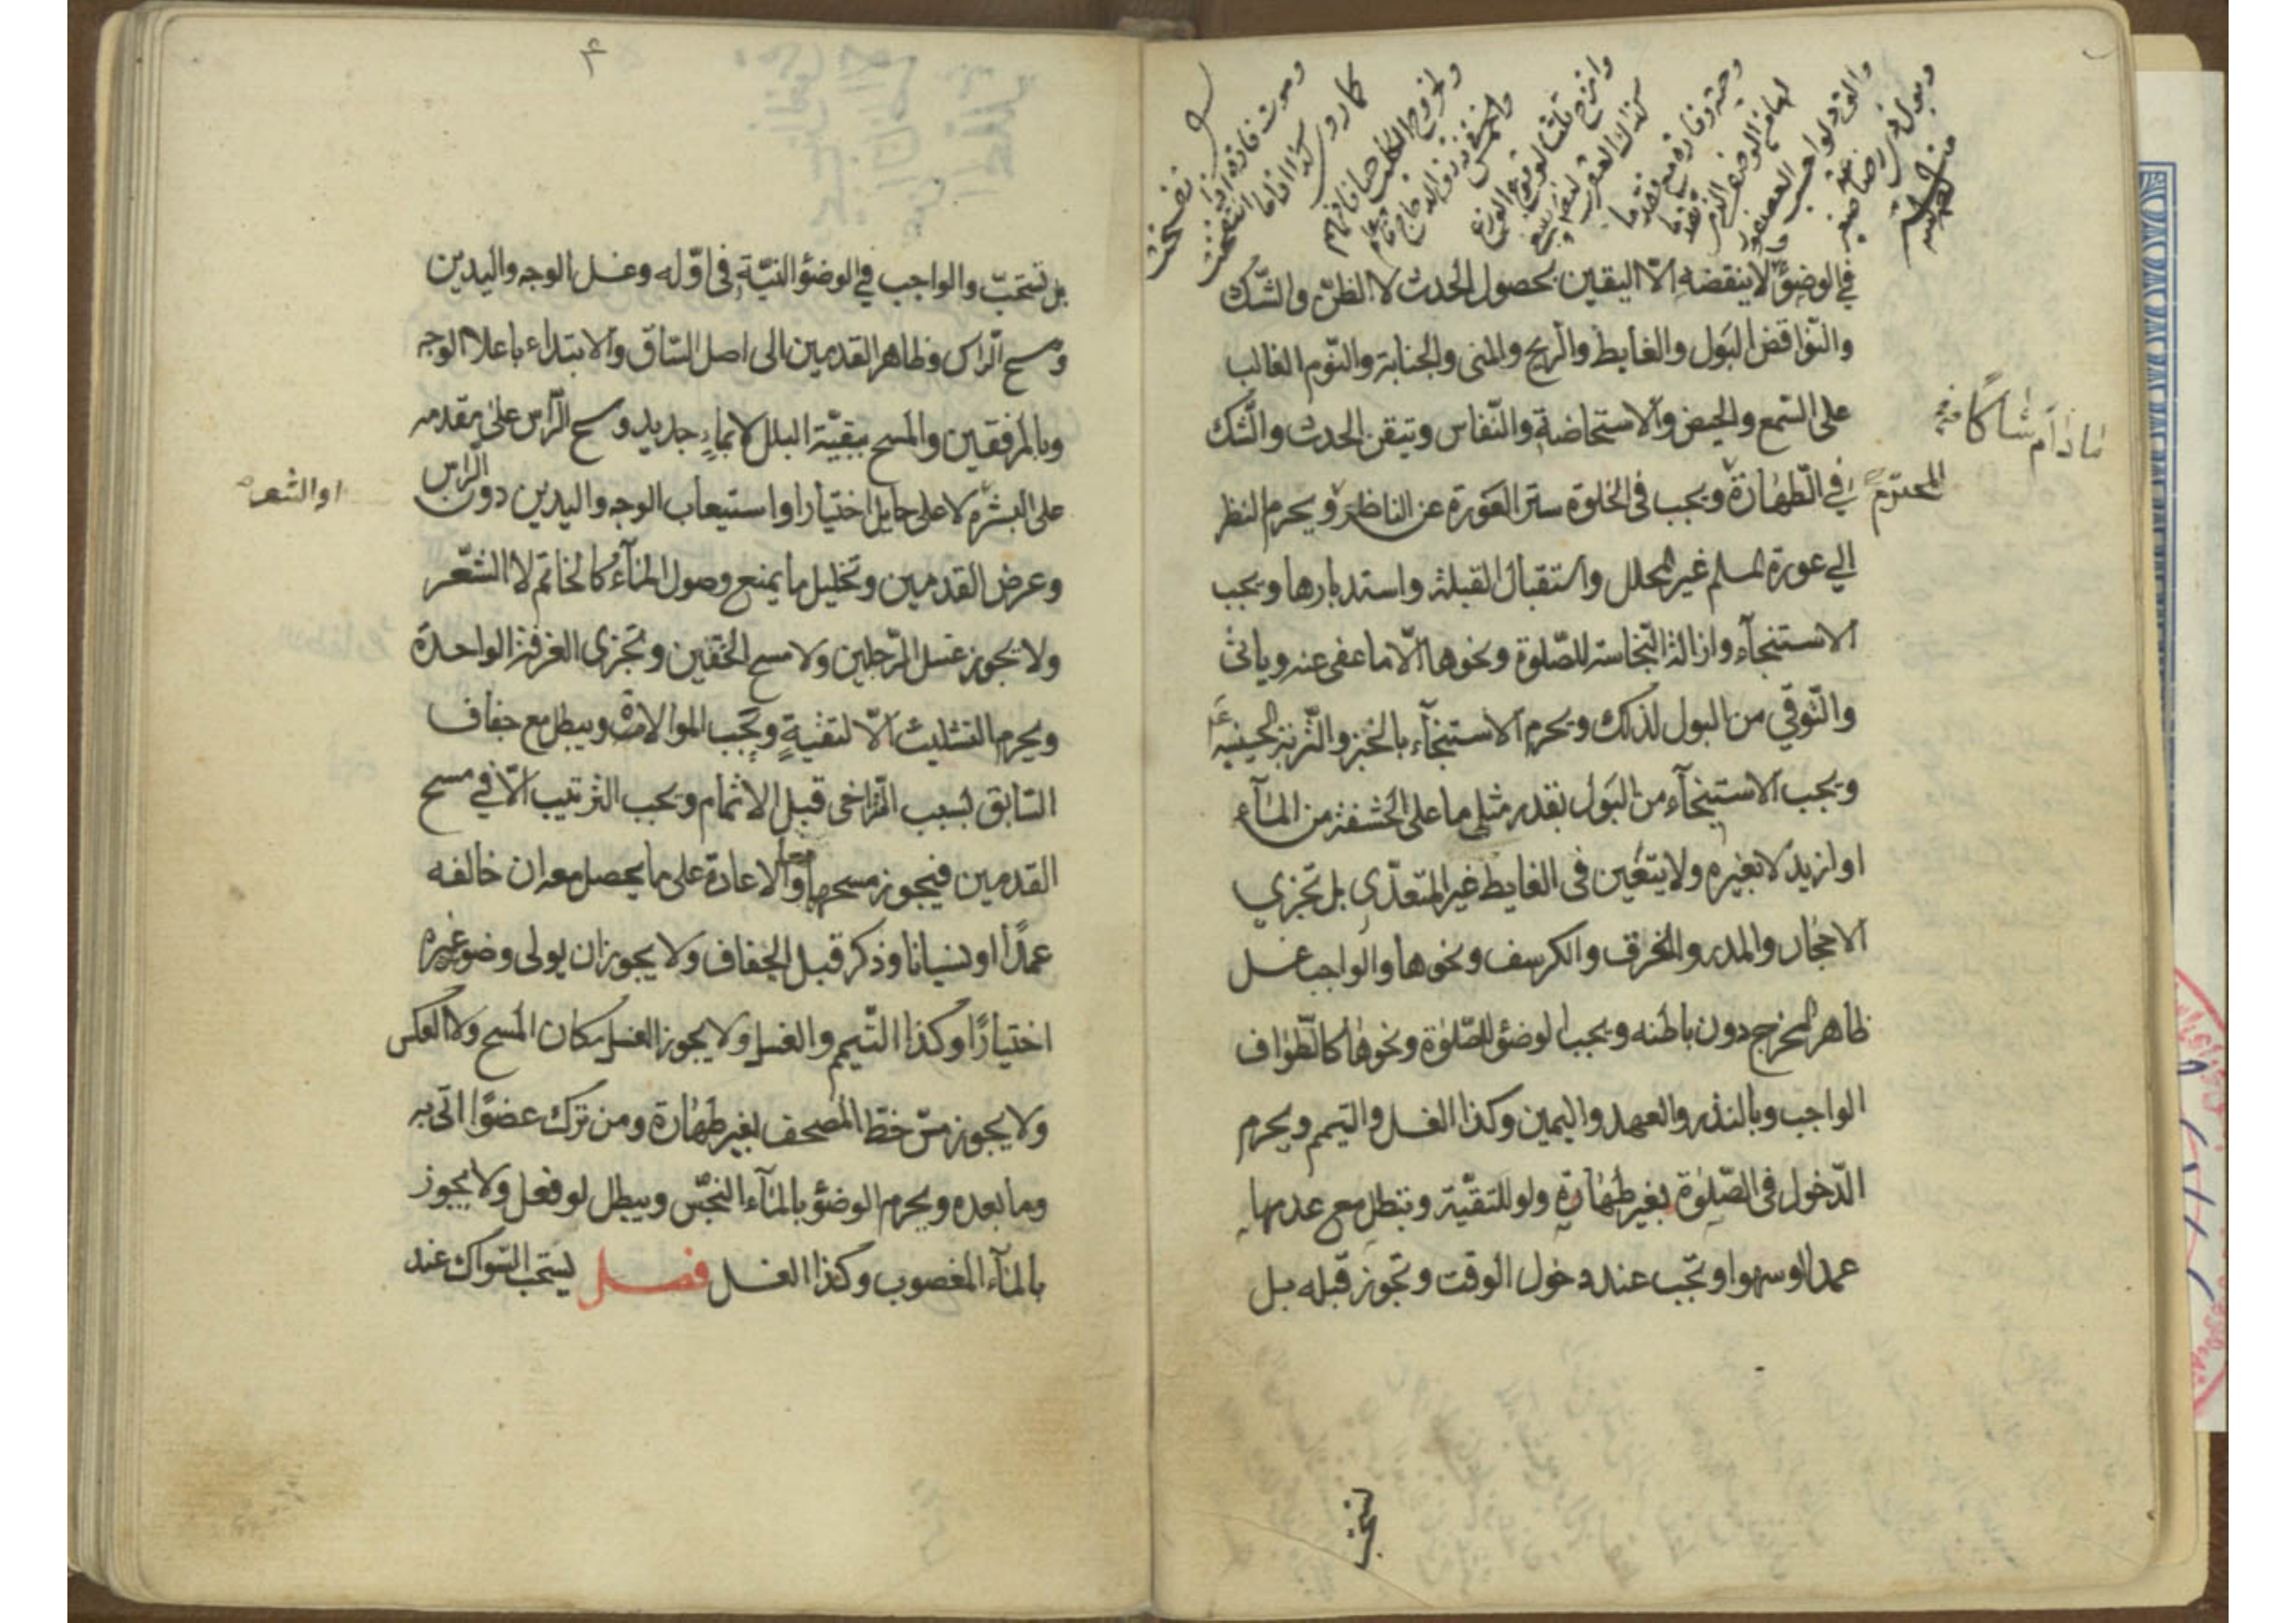 في الوضوء لا ينقضه الا اليقين بحصول الحدث لا الظن والشك
والنواقض البول والغايط والريح والمني والجنابة والنوم الغالب
على السمع والحيض والاستحاضة والنفاس وتيقن الحدث والشك
في الطهارة ويجب في الخلوة ستر العورة عن الناظر ويحرم النظر
المحترم
ما دام شاكا
الي عورة المسلم غير المحلل واستقبال القبلة واستدبارها ويجب
الاستنجآء وازالة النجاسة للصلوة ونحوها الا ما عفى عنه وياتى
والتوقي من البول لذلك ويحرم الاستنجآء بالخبز والتربة الحسينية
ويجب الاستنجآء من البول بقدر مثلي ما على الحشفة من المآء
او ازيد لا بغيره ولا يتعين في الغايط غير المتعدي بل تجزي
الاحجار والمدر والخرق والكرسف ونحوها والواجب غسل
ظاهر المخرج دون باطنه ويجب الوضوء للصلوة ونحوها كالطواف
الواجب وبالنذر والعهد واليمين وكذا الغسل والتيمم ويحرم
الدخول في الصلوة بغير طهارة ولو للتقية وتبطل مع عدمها
عمدا او سهوا وتجب عند دخول الوقت وتجوز قبله بل
تستحب
۴
بل تستحب والواجب في الوضوء النية في اوله وغسل الوجه واليدين
ومسح الراس وظاهر القدمين الى اصل الساق والابتداء باعلا الوجه
وبالمرفقين والمسح ببقية البلل لا بماء جديد ومسح الراس على مقدمه
على البشرة لا على حايل اختيارا واستيعاب الوجه واليدين دون الراس
او الشعر
وعرض القدمين وتخليل ما يمنع وصول المآء كالخاتم لا الشعر
ولا يجوز غسل الرجلين ولا مسح الخفين وتجزى الغرفة الواحدة
ويحرم التثليث الا لتقية وتجب الموالاة ويبطل مع جفاف
السابق بسبب التراخى قبل الاتمام ويجب الترتيب الا في مسح
القدمين فيجوز مسحهما معا والاعادة على ما يحصل معه ان خالفه
عمدا او نسيانا وذكر قبل الجفاف ولا يجوز ان يولى وضوء غيره
اختيارا وكذا التيمم والغسل ولا يجوز الغسل مكان المسح ولا العكس
ولا يجوز مس خط المصحف بغير طهارة ومن ترك عضوا اتى به
وما بعده ويحرم الوضوء بالمآء النجس ويبطل لو فعل ولا يجوز
بالمآء المغصوب وكذا الغسل فصل يستحب السواك عند